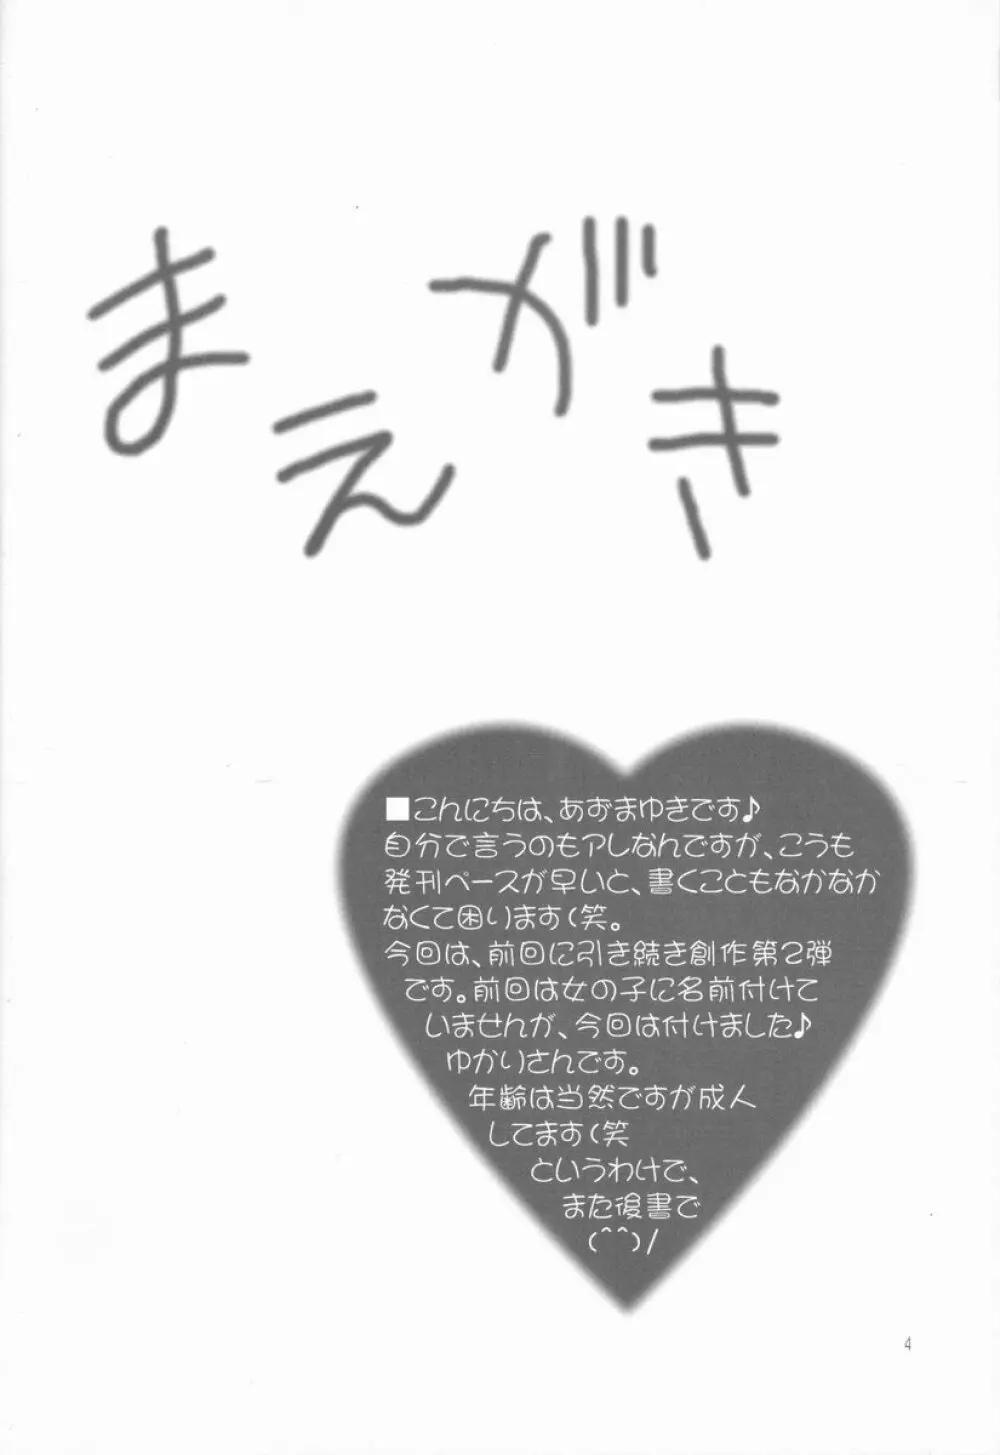 まえがき
■こんにちは、あずまゆきです♪
自分で言うのもアレなんですが、こうも
発刊ペースが早いと、書くこともなかなか
なくて困ります(笑。
今回は、前回に引き続き創作第2弾
です。前回は女の子に名前付けて
いませんが、今回は付けました♪
ゆかりさんです。
年齢は当然ですが成人
してます(笑
というわけで、
また後書で
(^^)/
4